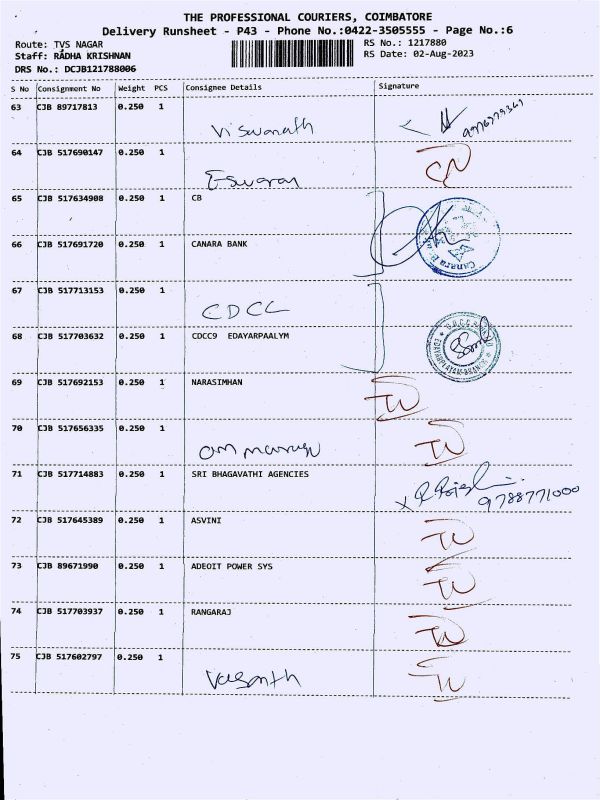 THE PROFESSIONAL COURIERS, COIMBATORE
Delivery Runsheet - P43 - Phone No.:0422-3505555 - Page No.:6
Route: TVS NAGAR
RS No.: 1217880
Staff: RADHA KRISHNAN
RS Date: 02-Aug-2023
DRS No.: DCJB121788006
S No Consignment No Weight PCS Consignee Details Signature
63 CJB 89717813 0.250 1
Viswanath
64 CJB 517690147 0.250 1
Eswaran
65 CJB 517634908 0.250 1 CB
66 CJB 517691720 0.250 1 CANARA BANK
Canara
67 CJB 517713153 0.250 1
CDCC
68 CJB 517703632 0.250 1 CDCC9 EDAYARPAALYM
69 CJB 517692153 0.250 1 NARASIMHAN
70 CJB 517656335 0.250 1
71 CJB 517714883 0.250 1 SRI BHAGAVATHI AGENCIES
9788771000
72 CJB 517645389 0.250 1 ASVINI
73 CJB 89671990 0.250 1 ADEOIT POWER SYS
74 CJB 517703937 0.250 1 RANGARAJ
75 CJB 517602797 0.250 1
Vasanth